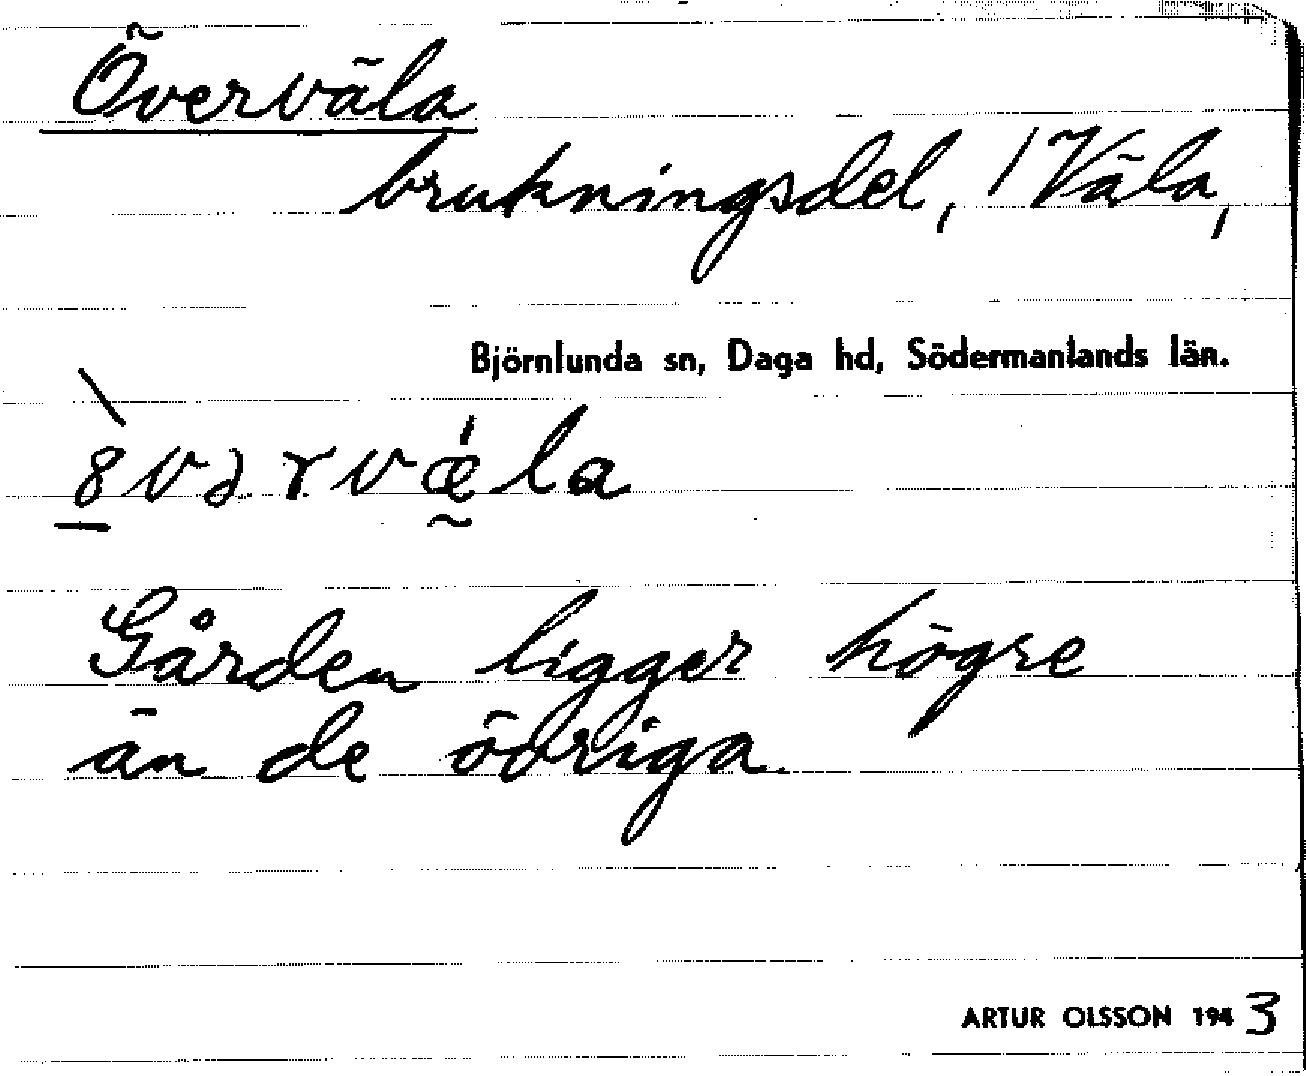 Överväla
brukningsdel, 1 Väla,
Björnlunda sn, Daga hd, Södermanlands län.
Gården ligger högre
än de övriga.
ARTUR OLSSON 1943